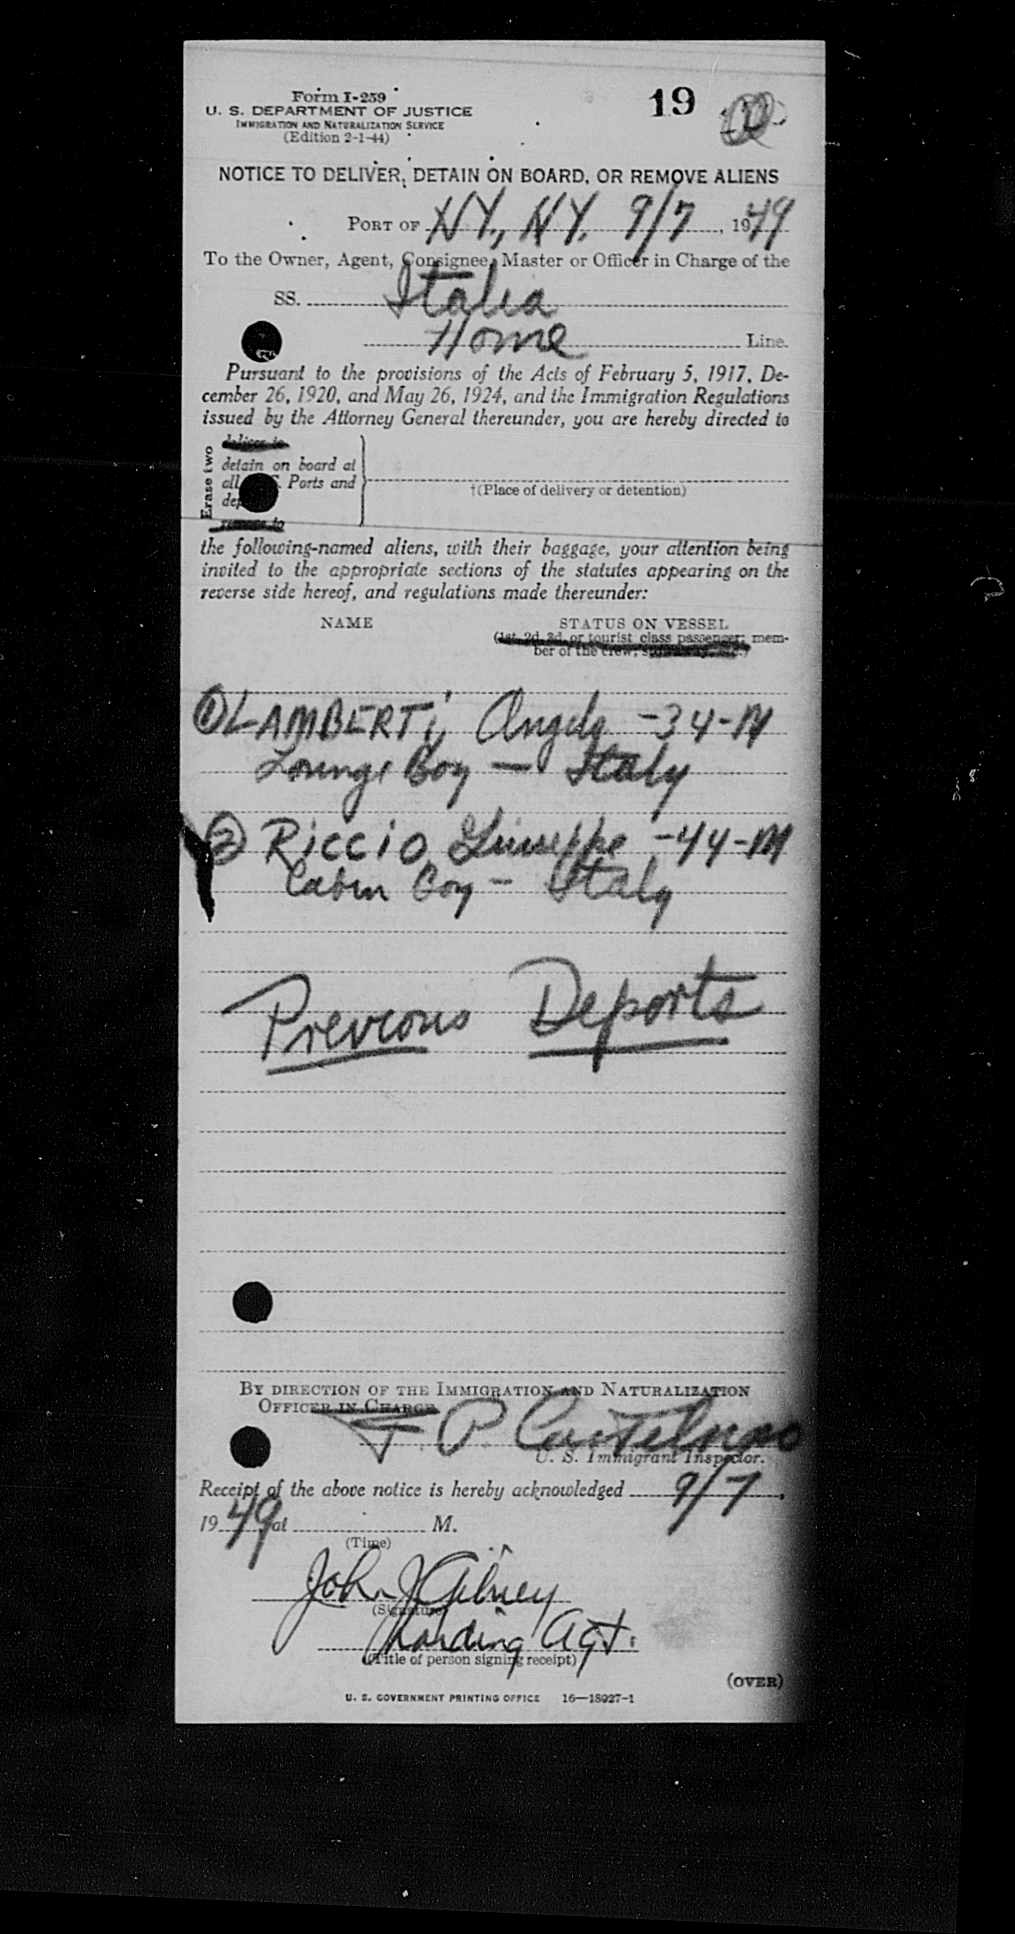 Form I-259
U. S. DEPARTMENT OF JUSTICE
IMMIGRATION AND NATURALIZATION SERVICE
(Edition 2-1-44)
19
NOTICE TO DELIVER, DETAIN ON BOARD, OR REMOVE ALIENS
PORT OF N.Y., N.Y. 9/7, 1949
To the Owner, Agent, Consignee, Master or Officer in Charge of the
SS. Italia
Home Line.
Pursuant to the provisions of the Acts of February 5, 1917, De-
cember 26, 1920, and May 26, 1924, and the Immigration Regulations
issued by the Attorney General thereunder, you are hereby directed to
Erase two
deliver to
detain on board at
all Ports and
†(Place of delivery or detention)
remove to
the following-named aliens, with their baggage, your attention being
invited to the appropriate sections of the statutes appearing on the
reverse side hereof, and regulations made thereunder:
NAME STATUS ON VESSEL
(1st, 2d, 3d, or tourist class passenger; mem-
ber of the crew; stowaway, etc.)
① LAMBERTi, Angelo -34-M
Lounge Boy — Italy
② Riccio, Giuseppe -44-M
Cabin Boy - Italy
Previous Deports
BY DIRECTION OF THE IMMIGRATION AND NATURALIZATION
OFFICER IN CHARGE
P.
U. S. Immigrant Inspector.
Receipt of the above notice is hereby acknowledged 9/7,
1949 at M.
(Time)
John J Gibney
(Signature)
Boarding Agt.
(Title of person signing receipt)
(OVER)
U. S. GOVERNMENT PRINTING OFFICE 16—18027-1